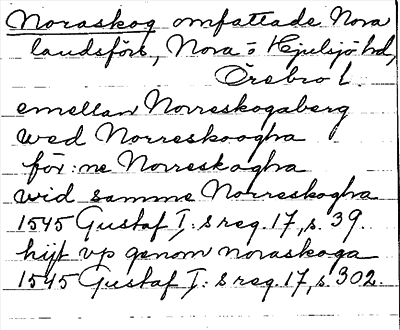 Noraskog omfattade Nora
landsförs., Nora o Hjulsjö hd,
Örebro l.
emellan Norreskogaberg
wed Norreskoogha
för:ne Norreskogha
wid samme Norreskogha
1545 Gustaf I:s reg. 17, s. 39.
hijt vp genom noraskoga
1545 Gustaf I:s reg. 17, s. 302.